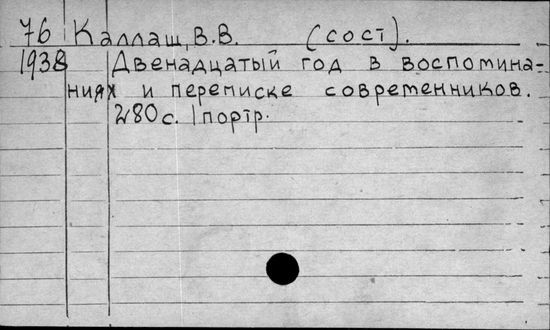 76 Каллаш, В.В. (сост).
1938 Двенадцатый год в воспомина-
ниях и переписке современников.
280с. 1портр.